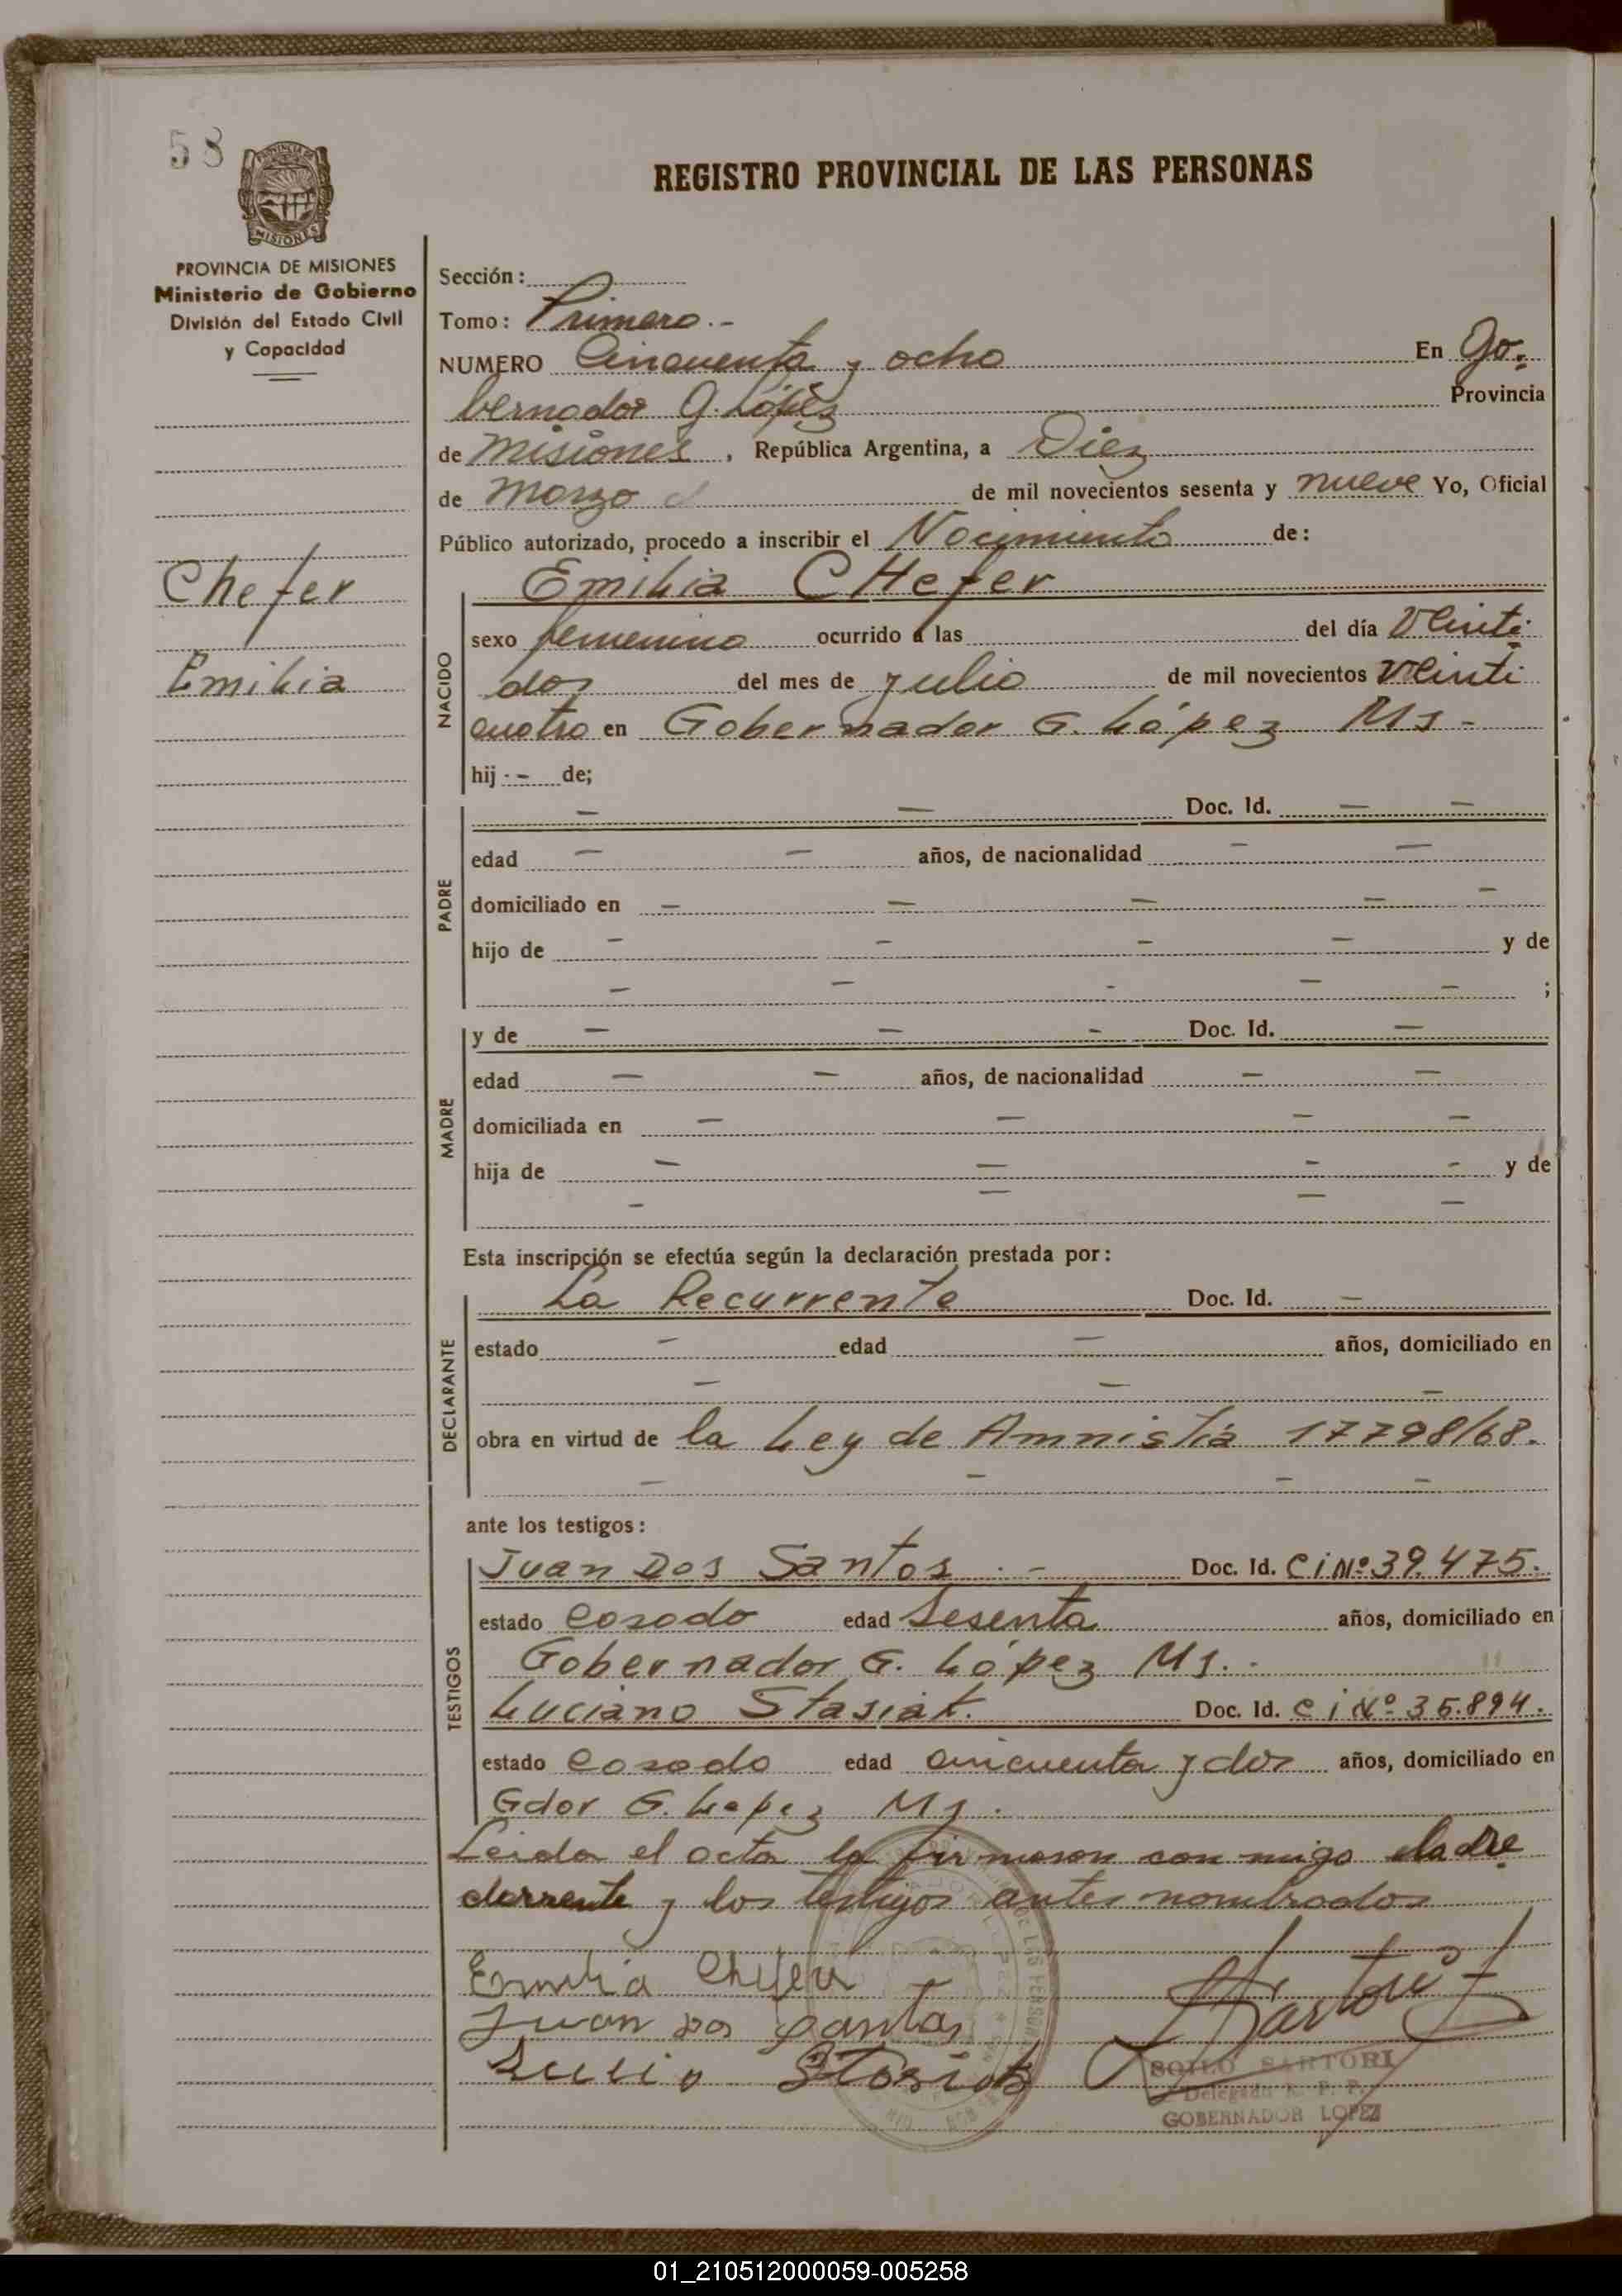 58
PROVINCIA DE MISIONES
Ministerio de Gobierno
División del Estado Civil
y Capacidad
Chefer
Emilia
REGISTRO PROVINCIAL DE LAS PERSONAS
Sección:
Tomo: Primero.-
NUMERO Cincuenta y ocho En Go-
bernador G. López Provincia
de Misiones, República Argentina, a Diez
de Marzo de mil novecientos sesenta y nueve Yo, Oficial
Público autorizado, procedo a inscribir el Nacimiento de:
NACIDO
Emilia CHefer
sexo femenino ocurrido a las del día Veinti
dos del mes de julio de mil novecientos veinti
cuatro en Gobernador G. López Ms -
hij -- de;
PADRE
- - Doc. Id. - -
edad - - años, de nacionalidad - -
domiciliado en - - - - -
hijo de - - - - y de
- - - - - ;
MADRE
y de - - - Doc. Id. -
edad - - años, de nacionalidad - -
domiciliada en - - - -
hija de - - - - y de
- - - -
Esta inscripción se efectúa según la declaración prestada por:
DECLARANTE
La Recurrente Doc. Id. -
estado - edad - años, domiciliado en
- - -
obra en virtud de la Ley de Amnistía 17798/68.
- - - -
ante los testigos:
TESTIGOS
Juan Dos Santos .- Doc. Id. Ci Nº 39.475.
estado Casado edad Sesenta años, domiciliado en
Gobernador G. López Ms. -
Luciano Stasiak. Doc. Id. Ci Nº 35.894.
estado Casado edad cincuenta y dos años, domiciliado en
Gdor G. Lopez Ms.
Leida el acta la firmaron con migo
y los testigos antes nombrados
Emilia Chefer
Juan dos Santos
SOILO SARTORI
Delegado R. P. P.
GOBERNADOR LOPEZ
01_210512000059-005258